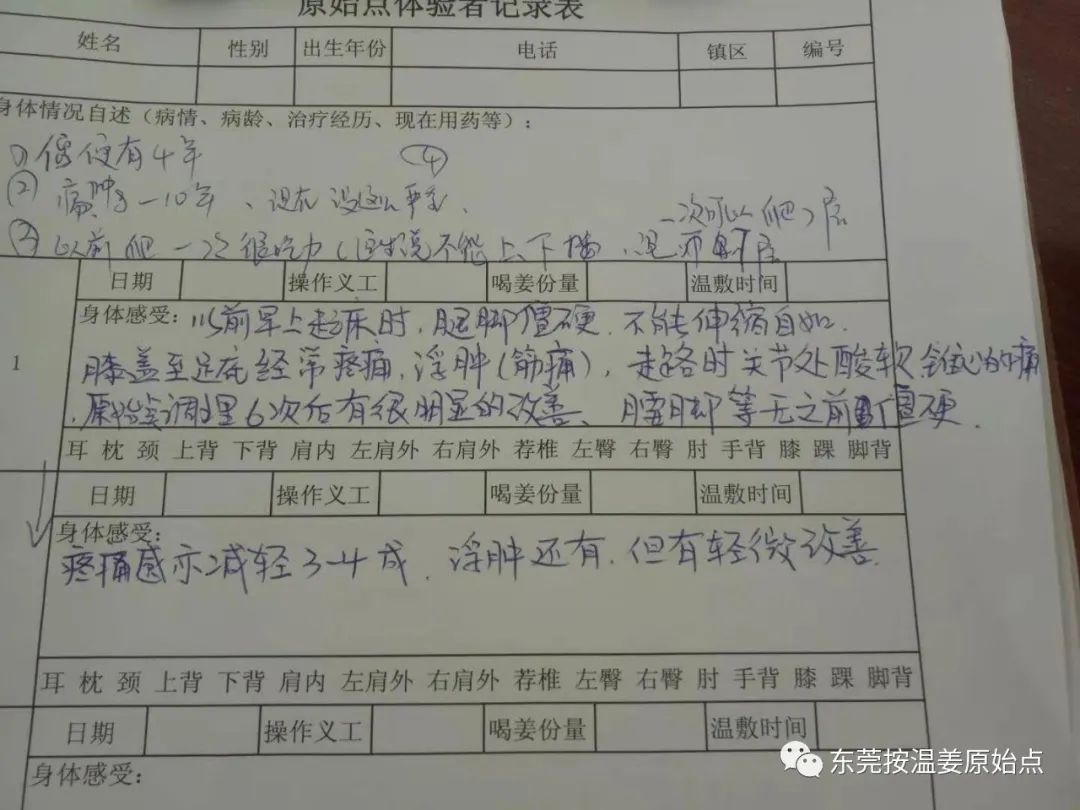 原始点体验者记录表
姓名 性别 出生年份 电话 镇区 编号
身体情况自述（病情、病龄、治疗经历、现在用药等）：
① 便有4年 ④
② 痛肿 一10年、现在没这么严重.
一次可以爬 层
③ 以前爬一次很吃力(医生说不能上下楼.
日期 操作义工 喝姜份量 温敷时间
1
身体感受：以前早上起床时，腿脚僵硬.不能伸缩自如.
膝盖至足底经常疼痛，浮肿(筋痛)，走路时关节处酸软 痛
.原始点调理6次后有很明显的改善、腿脚等无之前 僵硬.
耳 枕 颈 上背 下背 肩内 左肩外 右肩外 荐椎 左臀 右臀 肘 手背 膝 踝 脚背
日期 操作义工 喝姜份量 温敷时间
身体感受：
疼痛感亦减轻3-4成.浮肿还有.但有轻微改善.
耳 枕 颈 上背 下背 肩内 左肩外 右肩外 荐椎 左臀 右臀 肘 手背 膝 踝 脚背
日期 操作义工 喝姜份量 温敷时间
身体感受：
东莞按温姜原始点